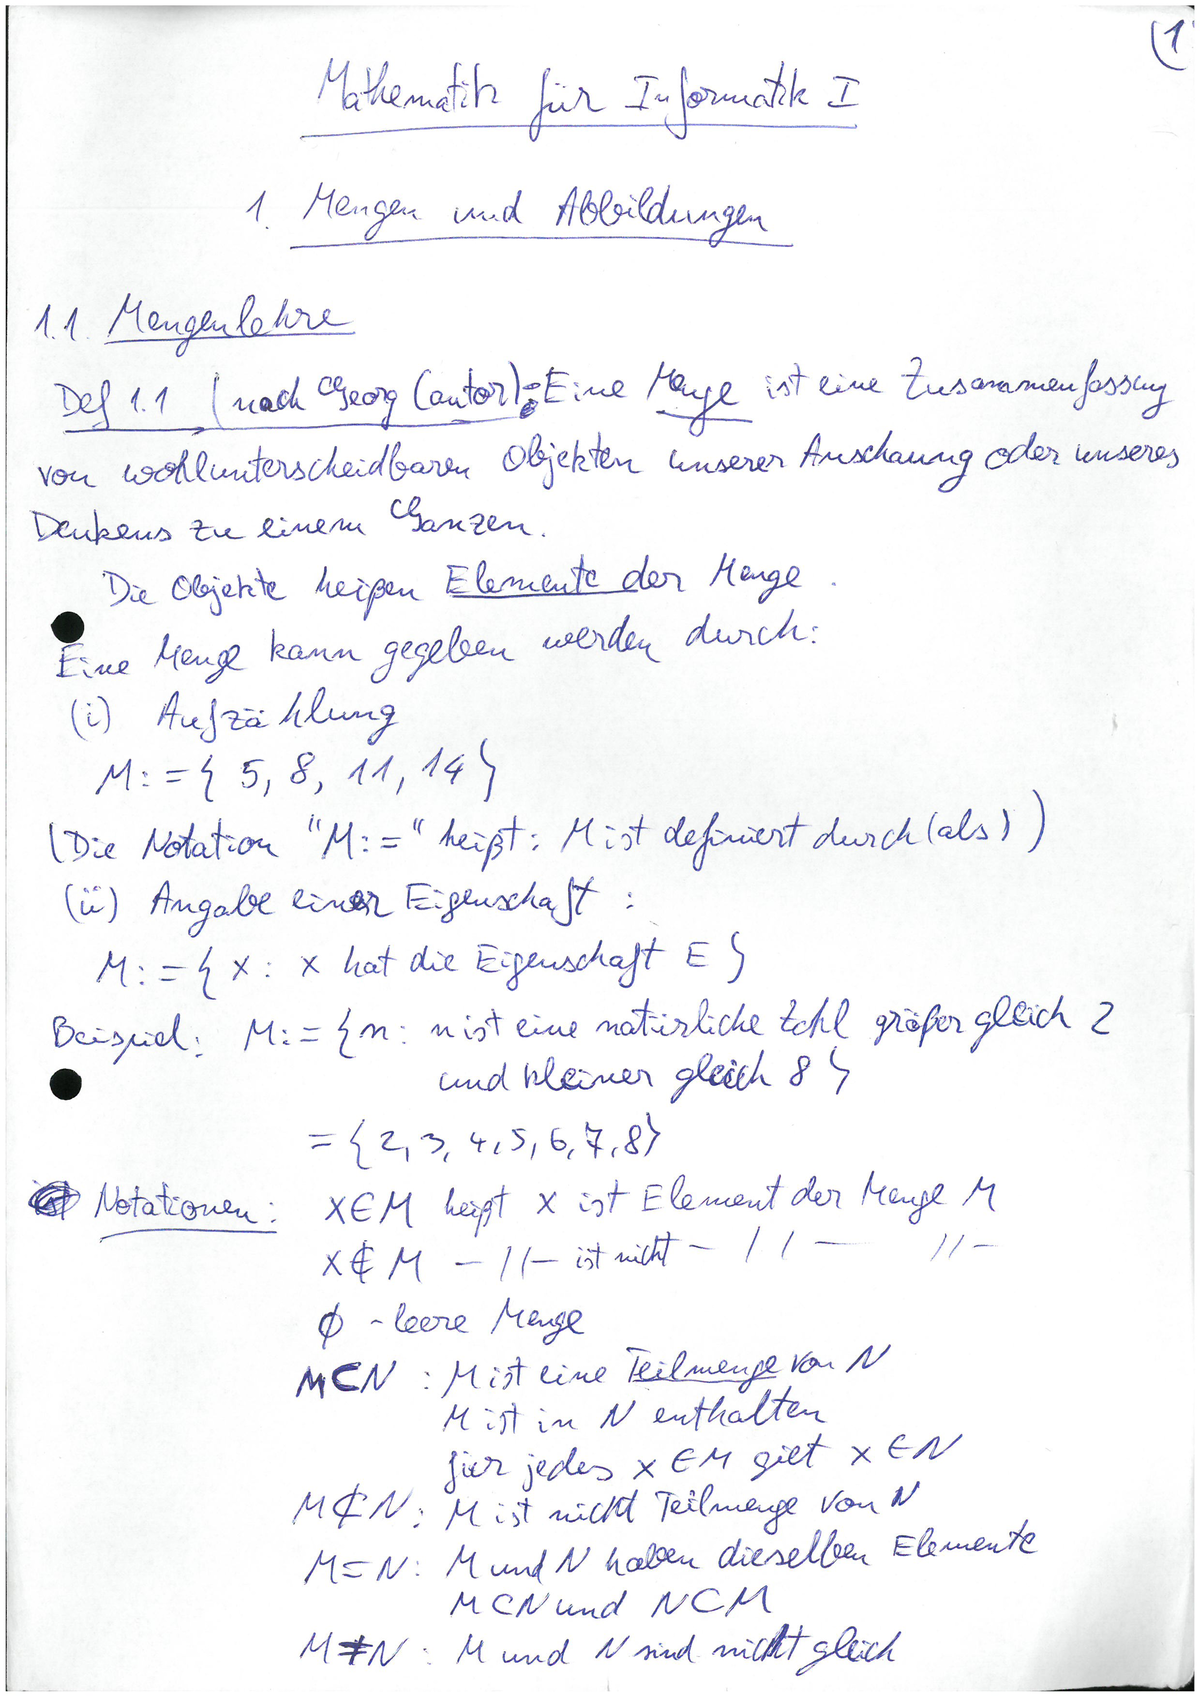 (1
Mathematik für Informatik I
1. Mengen und Abbildungen
1.1. Mengenlehre
Def 1.1 (nach Georg Cantor): Eine Menge ist eine Zusammenfassung
von wohlunterscheidbaren Objekten unserer Anschauung oder unseres
Denkens zu einem Ganzen.
Die Objekte heißen Elemente der Menge.
Eine Menge kann gegeben werden durch:
(i) Aufzählung
M := { 5, 8, 11, 14 }
(Die Notation "M:=" heißt: M ist definiert durch (als))
(ii) Angabe einer Eigenschaft:
M := { x : x hat die Eigenschaft E }
Beispiel: M := { n : n ist eine natürliche Zahl größer gleich 2
und kleiner gleich 8 }
= { 2, 3, 4, 5, 6, 7, 8 }
Notationen: x ∈ M heißt x ist Element der Menge M
x ∉ M — // — ist nicht — // — // —
∅ - leere Menge
M ⊂ N : M ist eine Teilmenge von N
M ist in N enthalten
für jedes x ∈ M gilt x ∈ N
M ⊄ N : M ist nicht Teilmenge von N
M = N : M und N haben dieselben Elemente
M ⊂ N und N ⊂ M
M ≠ N : M und N sind nicht gleich